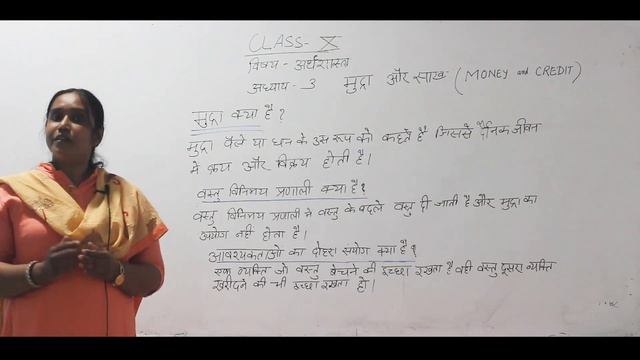 CLASS- X
विषय - अर्थशास्त्र
अध्याय - 3 मुद्रा और साख (MONEY and CREDIT)
मुद्रा क्या है ?
मुद्रा पैसे या धन के उस रूप को कहते है जिससे दैनिक जीवन
मे क्रय और विक्रय होती है।
वस्तु विनिमय प्रणाली क्या है ?
वस्तु विनिमय प्रणाली मे वस्तु के बदले वस्तु दी जाती है और मुद्रा का
प्रयोग नही होता है।
आवश्यकताओ का दोहरा संयोग क्या है ?
एक व्यक्ति जो वस्तु बेचने की इच्छा रखता है वही वस्तु दूसरा व्यक्ति
खरीदने की भी इच्छा रखता हो।